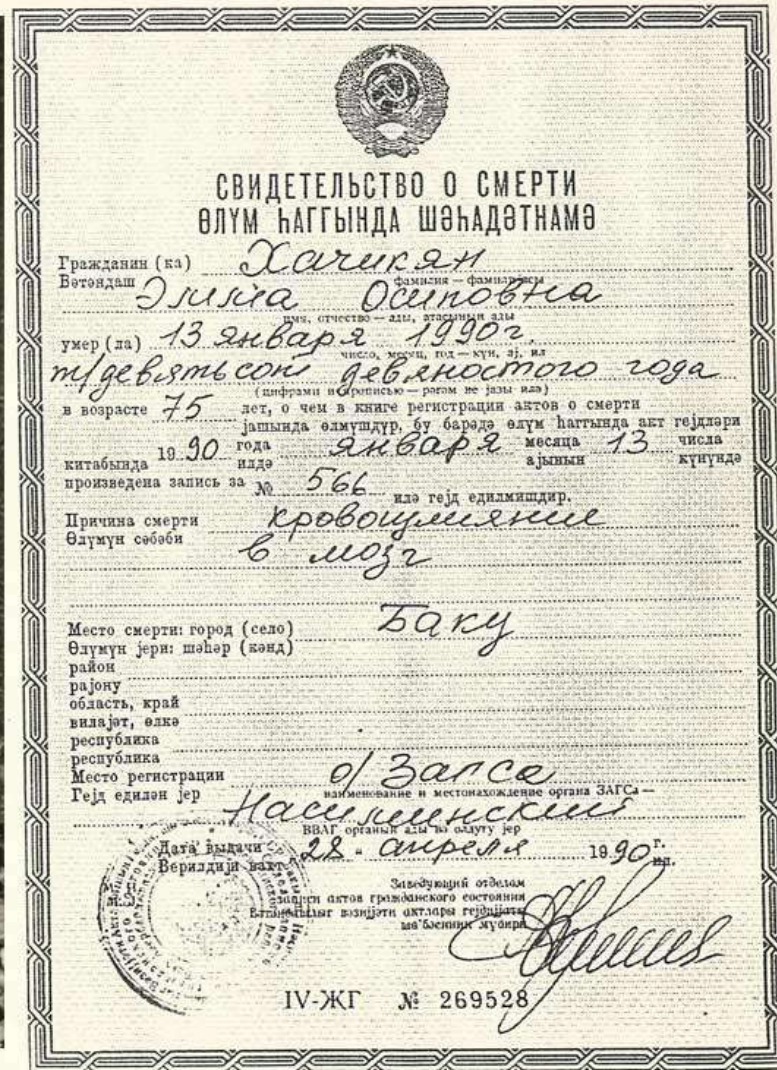 СВИДЕТЕЛЬСТВО О СМЕРТИ
ӨЛҮМ ҺАГГЫНДА ШӘҺАДӘТНАМӘ
Гражданин (ка) Хачикян
Вәтәндаш фамилия — фамилијасы
Эмма Осиповна
имя, отчество — ады, атасынын ады
умер (ла) 13 января 1990 г.
число, месяц, год — күн, ај, ил
т/девятьсот девяностого года
(цифрами и прописью — рәгәм вә јазы илә)
в возрасте 75 лет, о чем в книге регистрации актов о смерти
јашында өлмүшдүр, бу барәдә өлүм һаггында акт гејдләри
китабында 1990 года январь месяца 13 числа
илдә ајынын күнүндә
произведена запись за № 566 илә гејд едилмишдир.
Причина смерти кровоизлияние
Өлүмүн сәбәби в мозг
Место смерти: город (село) Баку
Өлүмүн јери: шәһәр (кәнд)
район
рајону
область, край
вилајәт, өлкә
республика
республика
Место регистрации о/ Загса
Гејд едилән јер наименование и местонахождение органа ЗАГСа —
Насиминский
ВВАГ органын ады вә олдуғу јер
Дата выдачи 28 " апреля 1990 г.
Верилдији вахт ил.
Заведующий отделом
записи актов гражданского состояния
Вәтәндашлыг вәзијјәти актлары гејдијјаты
шө'бәсинин мүдири
IV-ЖГ № 269528